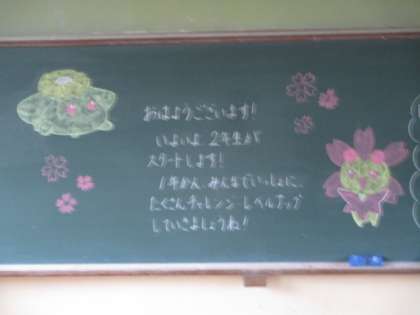 おはようございます!
いよいよ 2年生が
スタートします!
1年かん、みんなでいっしょに、
たくさんチャレンジ レベルアップ
していきましょうね!